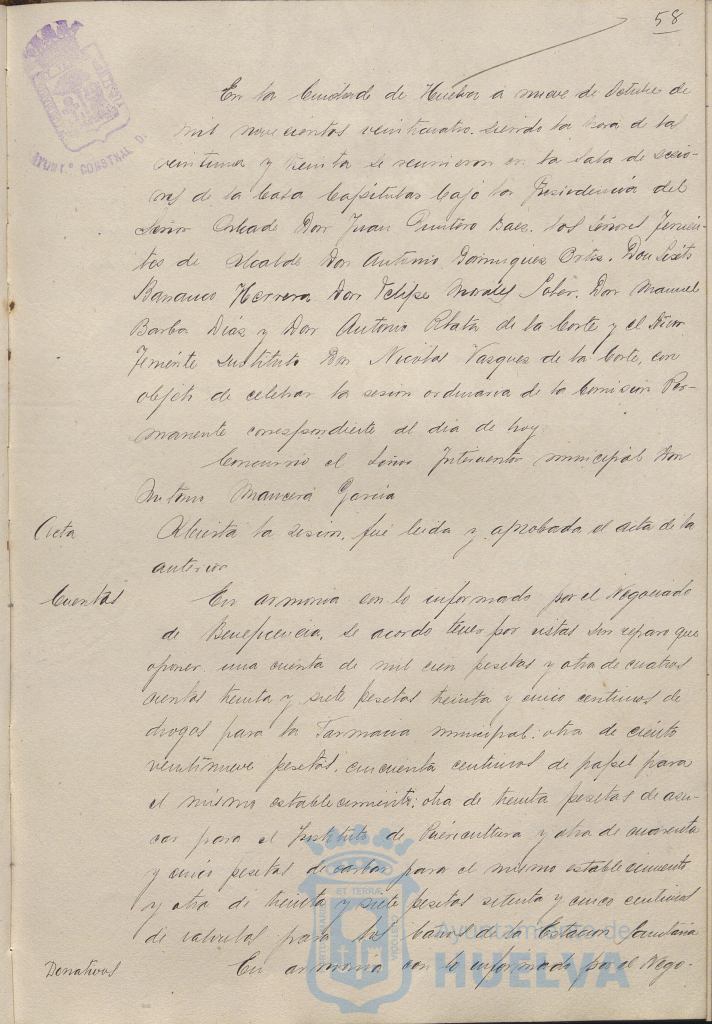 58
En la Ciudad de Huelva a nueve de Octubre de
mil novecientos veinticuatro. siendo la hora de las
veintiuna y treinta se reunieron en la Sala de sesio-
nes de la Casa Capitular bajo la Presidencia del
Señor Alcalde Don Juan Quintero Baez. los señores Tenien-
tes de Alcalde Don Antonio Dominguez Ortiz. Don Sixto
Barranco Herrera Don Felipe Morales Soler. Don Manuel
Barba Diaz y Don Antonio Plata de la Corte y el
Teniente sustituto Don Nicolás Vazquez de la Corte, con
objeto de celebrar la sesion ordinaria de la Comisión Per-
manente correspondiente al dia de hoy
Concurrio el Señor Interventor municipal Don
Antonio Mancera Garcia
Acta
Abierta la sesion, fué leida y aprobada el acta de la
anterior
Cuentas
En armonia con lo informado por el Negociado
de Beneficencia, se acordo tener por vistas sin reparo que
oponer una cuenta de mil cien pesetas y otra de cuatro
cientas treinta y siete pesetas treinta y cinco centimos de
drogas para la Farmacia municipal: otra de ciento
veintinueve pesetas. cincuenta centimos de papel para
el mismo establecimiento: otra de treinta pesetas de azu-
car para el Instituto de Puericultura y otra de cuarenta
y cinco pesetas de carbon para el mismo establecimiento
y otra de treinta y siete pesetas setenta y cinco centimos
de valvulas para los baños de la Estacion Sanitaria
Donativos
En armonia con lo informado por el Nego-
Ayuntamiento de
HUELVA